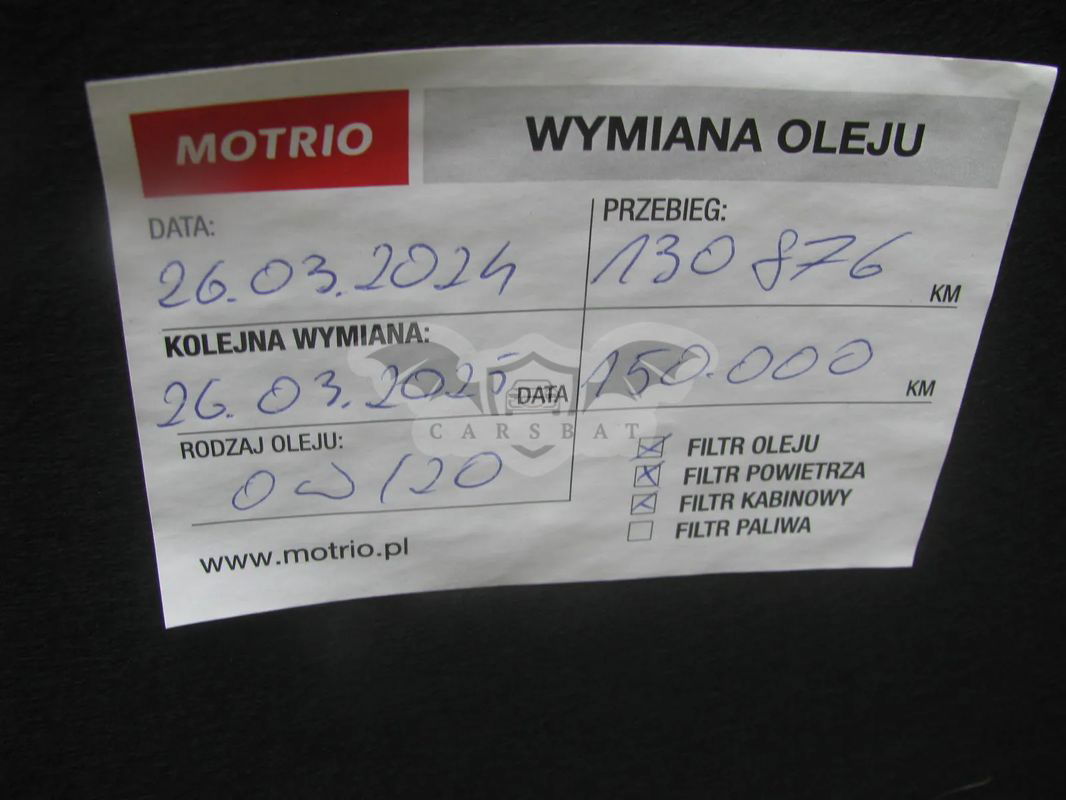 MOTRIO WYMIANA OLEJU
DATA: PRZEBIEG:
26.03.2024 130 876 KM
KOLEJNA WYMIANA:
26.03.2025 DATA 150.000 KM
CARSBAT
RODZAJ OLEJU: FILTR OLEJU
0W/20 FILTR POWIETRZA
FILTR KABINOWY
FILTR PALIWA
www.motrio.pl